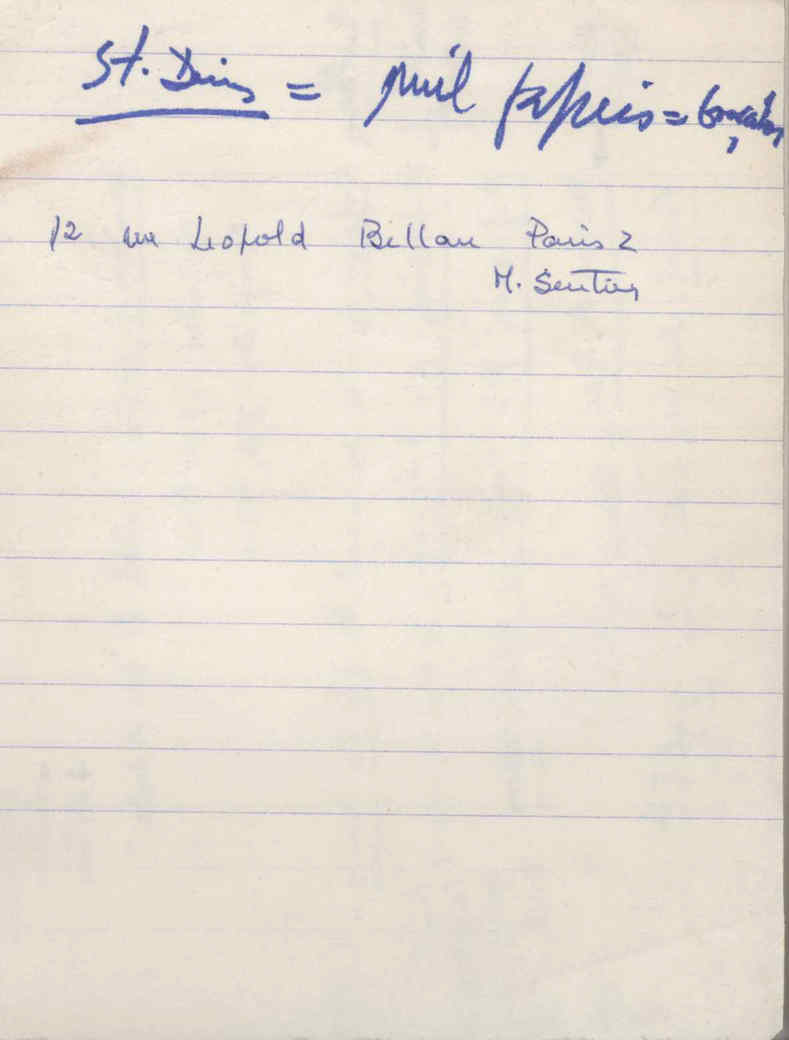 St. Denis = papiers =
12 rue Leopold Bellan Paris 2
M. Sentier